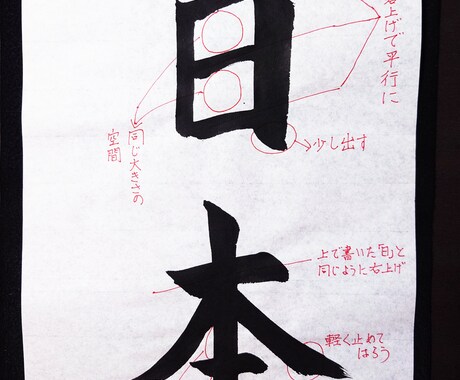 日本
右上げで平行に
同じ大きさの
空間
少し出す
上で書いた「日」と
同じように右上げ
軽く止めて
はらう